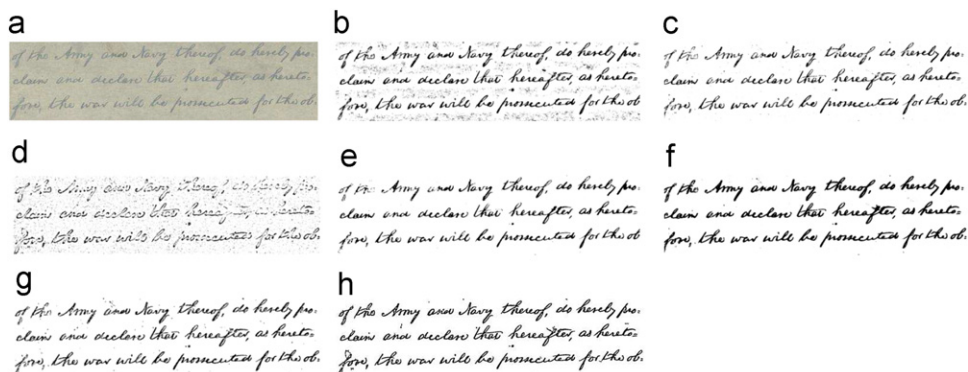 a
of the Army and Navy thereof, do hereby pro-
claim and declare that hereafter, as hereto-
fore, the war will be prosecuted for the ob-
b
of the Army and Navy thereof, do hereby pro-
claim and declare that hereafter, as hereto-
fore, the war will be prosecuted for the ob
c
of the Army and Navy thereof, do hereby pro-
claim and declare that hereafter, as hereto-
fore, the war will be prosecuted for the ob-
d
of the Army and Navy thereof, do hereby pro-
claim and declare that hereafter, as hereto-
fore, the war will be prosecuted for the ob-
e
of the Army and Navy thereof, do hereby pro-
claim and declare that hereafter, as hereto-
fore, the war will be prosecuted for the ob
f
of the Army and Navy thereof, do hereby pro-
claim and declare that hereafter, as hereto-
fore, the war will be prosecuted for the ob-
g
of the Army and Navy thereof, do hereby pro-
claim and declare that hereafter, as hereto-
fore, the war will be prosecuted for the ob-
h
of the Army and Navy thereof, do hereby pro-
claim and declare that hereafter, as hereto-
fore, the war will be prosecuted for the ob-